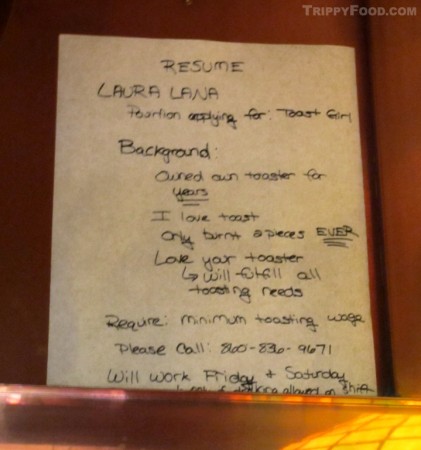 TRIPPYFOOD.COM
RESUME
LAURA LANA
Position applying for: Toast Girl
Background:
Owned own toaster for
years
I love toast
Only burnt 2 pieces EVER
Love your toaster
↳ Will fulfill all
toasting needs
Require: minimum toasting wage
Please Call: 860-836-9671
Will work Friday & Saturday
allowed on shift